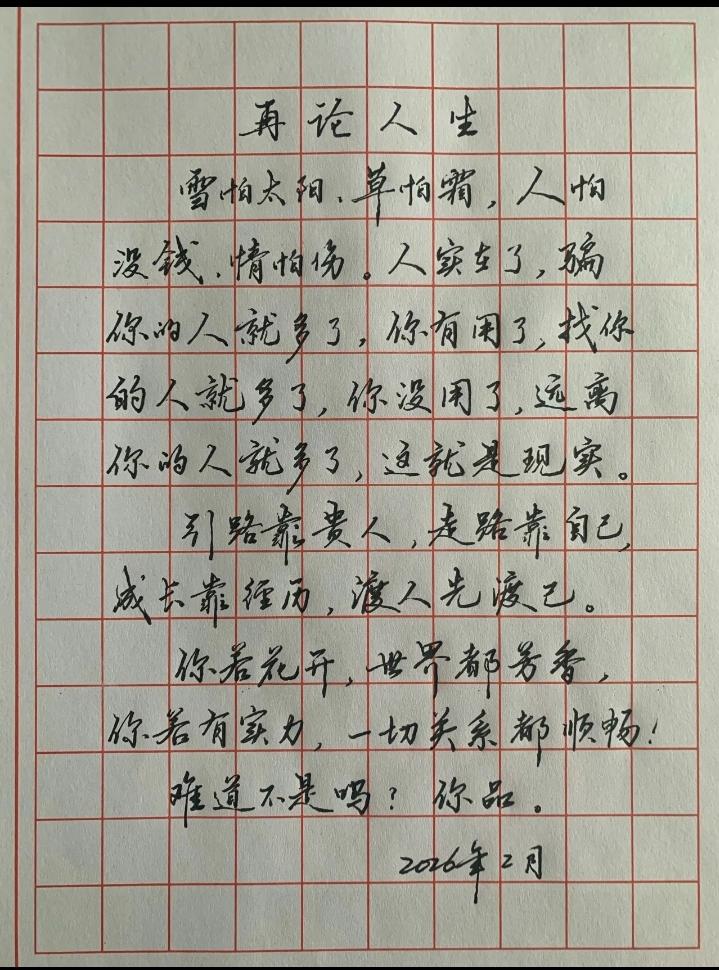 再论人生
雪怕太阳、草怕霜，人怕
没錢、情怕伤。人实在了，骗
你的人就多了，你有用了，找你
的人就多了，你没用了，远离
你的人就多了，这就是现实。
引路靠贵人，走路靠自己，
成长靠经历，渡人先渡己。
你若花开，世界都芳香，
你若有实力，一切关系都顺畅！
难道不是吗？你品。
2026年2月